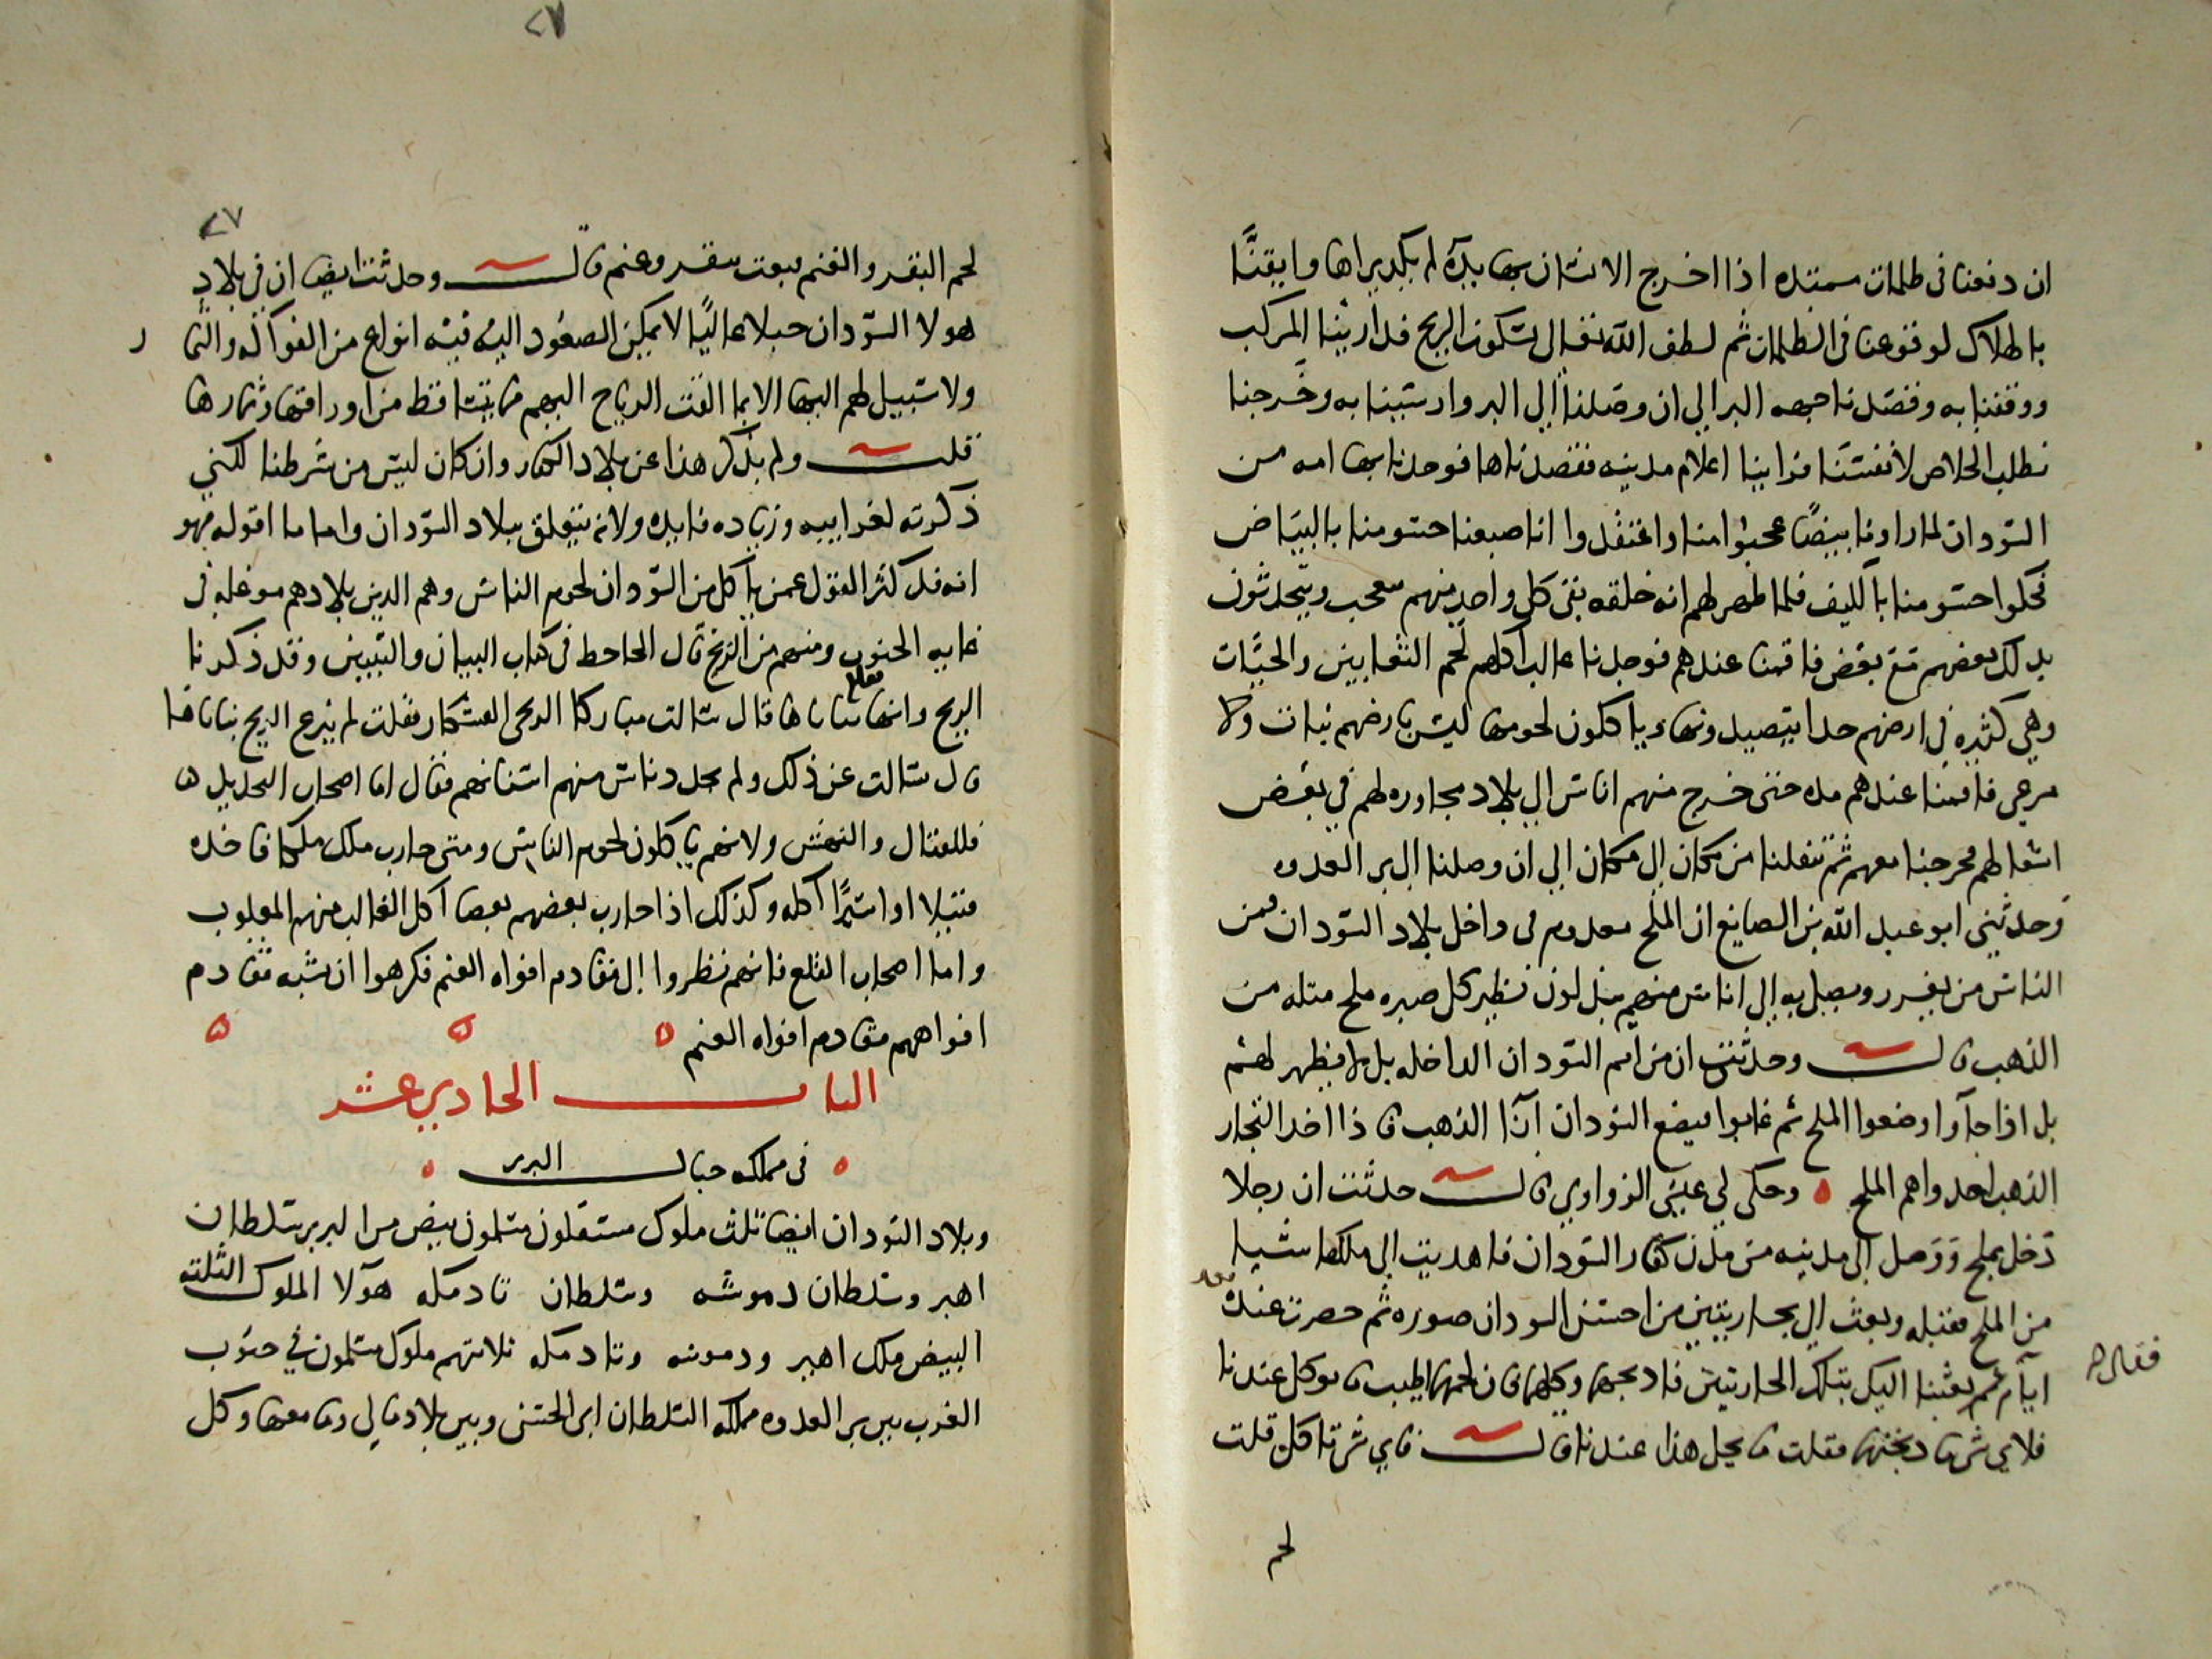 ان دفعنا فى ظلمات ممتده اذا اخرج الانسان بها يده لم يكد يراها وايقنَّا
بالهلاك لوقوعنا فى الظلمات ثم لطف الله تعالى بسكون الريح فدارينا المركب
ووقفنا به وقصدنا جهه البر الي ان وصلنا الي البر وارسينا به وخرجنا
نطلب الخلاص لانفسنا فراينا اعلام مدينه فقصدناها فوجدنا بها امه من
السودان لما راونا بيضًا عجبوا منا واعتقدوا انا صبغنا جسومنا بالبياض
فحكوا جسومنا بالليف فلما ظهر لهم انه خلقه بقى كل واحد منهم يتعجب ويتحدثون
بذلك بعضهم مع بعض فاقمنا عندهم فوجدنا غالب اكلهم لحم الثعابين والحيات
وهي كثيره في ارضهم جدا يتصيدونها وياكلون لحومها ليس بارضهم نبات ولا
مرعي فاقمنا عندهم مده حتى خرج منهم اناس الي بلاد مجاوره لهم في بعض
اشغالهم فخرجنا معهم ثم تنقلنا من مكان الي مكان الي ان وصلنا الي بر العدوه
وحدثني ابو عبد الله بن الصايغ ان الملح معدوم فى داخل بلاد السودان فمن
الناس من يغرر ويصل به الي اناس منهم يبذلون نظير كل صبره ملح مثله من
الذهب قال وحدثت ان من امم السودان الداخله من لا يظهر لهم
بل اذا جآوا وضعوا الملح ثم غابوا فيضع السودان ازا الذهب فاذا اخذ التجار
الذهب اخذوا هم الملح ه وحكى لي عيسى الزواوي قال حدثت ان رجلا
دخل بملح ووصل الى مدينه من مدن كفار السودان فاهديت الى ملكها شيا
من الملح فقبله وبعث الي بجاريتين من احسن السودان صوره ثم حضرت عنده بعد
ايام فقال لم بعثنا اليك بتلك الجاريتين فاذبحهما وكلهما فان لحمهما اطيب ما يوكل عندنا
فلاي شي ما ذبحتهما فقلت ما يحل هذا عندنا قال فاي شي تاكل قلت
لحم
٢٧
٢٧
لحم البقر والغنم فبعث ببقر وغنم قال وحدثت ايضا ان في بلاد
هولا السودان جبلا عاليًا لا يمكن الصعود اليه فيه انواع من الفواكه والثما ر
ولا سبيل لهم اليها الا بما القت الرياح اليهم مما يتساقط من اوراقها وثمارها
قلت ولم نذكر هذا عن بلاد الكفار وان كان ليس من شرطنا لكني
ذكرته لغرابيبه وزياده فايده ولانه يتعلق ببلاد السودان واما ما اقوله فهو
انه قد كثر القول عمن ياكل من السودان لحوم الناس وهم الذين بلادهم موغله في
غايه الجنوب ومنهم من الزنج قال الجاحظ فى كتاب البيان والتبيين وقد ذكرنا
الزنج وانها تقلع ثناياها قال سالت مباركا الزنجى الفشكار فقلت لم ينزع الزنج ثناياها
قال سالت عن ذلك ولم يحدد ناس منهم اسنانهم فقال اما اصحاب التحديد ها
فللقتال والنهش ولانهم ياكلون لحوم الناس ومتى حارب ملك ملكا فاخذه
قتيلا او اسيرًا اكله وكذلك اذا حارب بعضهم بعضا اكل الغالب منهم المغلوب
واما اصحاب القلع فانهم نظروا الى مقادم افواه الغنم فكرهوا ان تشبه مقادم
افواههم مقادم افواه الغنم ه ه ه
الباب الحادي عشر
ه فى مملكه جبال البربر ه
وبلاد السودان ايضا ثلث ملوك مستقلون مسلمون بيض من البربر سلطان
اهير وسلطان دموشه وسلطان تادمكه هآولا الملوك الثلثه
البيض ملك اهير ودموسه وتادمكه ثلاثتهم ملوك مسلمون في جنوب
الغرب بين بر العدوه مملكه السلطان ابى الحسن وبين بلاد مالي وما معها وكل